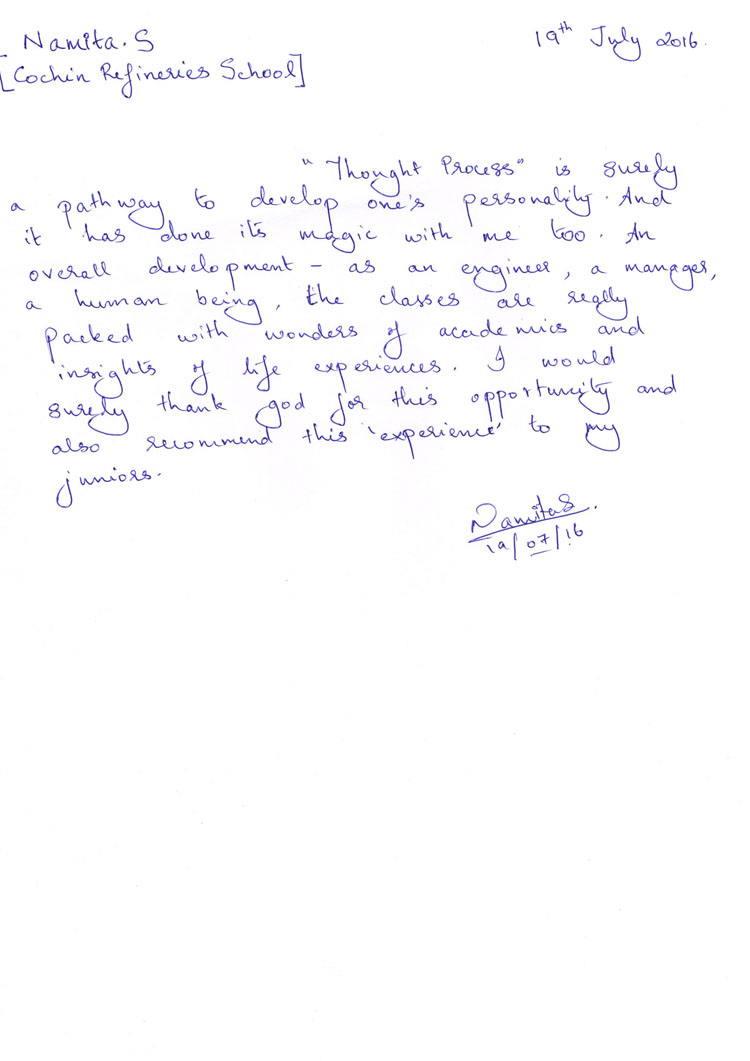 Namita.S
19th July 2016.
[Cochin Refineries School]
"Thought Process" is surely
a pathway to develop one's personality. And
it has done its magic with me too. An
overall development - as an engineer, a manager,
a human being, the classes are really
packed with wonders of academics and
insights of life experiences. I would
surely thank god for this opportunity and
also recommend this 'experience' to my
juniors.
NamitaS.
19/07/16